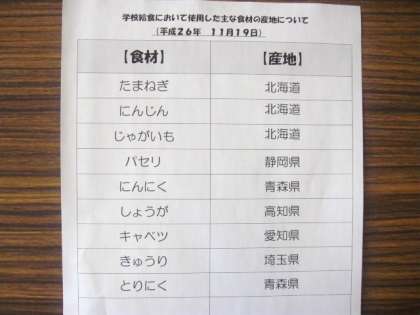 学校給食において使用した主な食材の産地について
(平成26年 11月19日)
【食材】 【産地】
たまねぎ 北海道
にんじん 北海道
じゃがいも 北海道
パセリ 静岡県
にんにく 青森県
しょうが 高知県
キャベツ 愛知県
きゅうり 埼玉県
とりにく 青森県